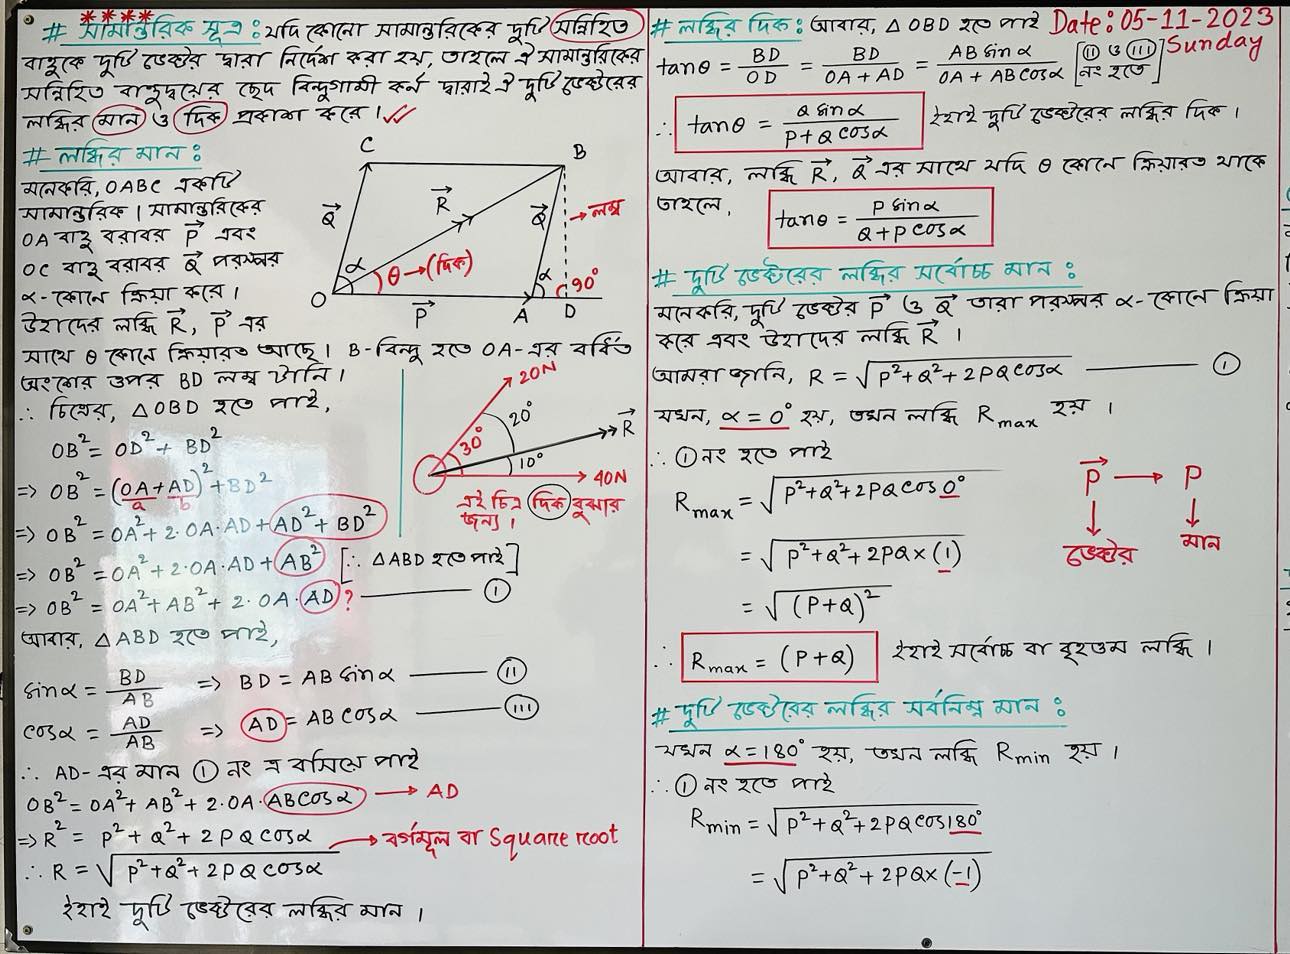 ****
# সামান্তরিক সূত্র : যদি কোনো সামান্তরিকের দুটি সন্নিহিত
বাহুকে দুটি ভেক্টর দ্বারা নির্দেশ করা হয়, তাহলে ঐ সামান্তরিকের
সন্নিহিত বাহুদ্বয়ের ছেদ বিন্দুগামী কর্ন দ্বারাই ঐ দুটি ভেক্টরের
লব্ধির মান ও দিক প্রকাশ করে।
# লব্ধির মান :
মনেকরি, OABC একটি
সামান্তরিক। সামান্তরিকের
OA বাহু বরাবর P⃗ এবং
OC বাহু বরাবর Q⃗ পরস্পর
α-কোনে ক্রিয়া করে।
উহাদের লব্ধি R⃗, P⃗ এর
সাথে θ কোনে ক্রিয়ারত আছে। B-বিন্দু হতে OA-এর বর্ধিত
অংশের ওপর BD লম্ব টানি।
C
B
Q⃗
R⃗
Q⃗
→ লম্ব
α
θ → (দিক)
α
90°
O
P⃗
A
D
∴ চিত্রে, △OBD হতে পাই,
OB² = OD² + BD²
=> OB² = (OA + AD)² + BD²
a b
=> OB² = OA² + 2·OA·AD + AD² + BD²
=> OB² = OA² + 2·OA·AD + AB² [∵ △ABD হতে পাই]
=> OB² = OA² + AB² + 2·OA·AD ? —— (I)
20N
20°
30°
R⃗
10°
40N
এই চিত্র দিক বুঝার
জন্য।
আবার, △ABD হতে পাই,
sinα = BD/AB => BD = AB sinα —— (II)
cosα = AD/AB => AD = AB cosα —— (III)
∴ AD-এর মান (I) নং এ বসিয়ে পাই
OB² = OA² + AB² + 2·OA·ABcosα → AD
=> R² = P² + Q² + 2PQcosα → বর্গমূল বা Square root
∴ R = √(P² + Q² + 2PQcosα)
ইহাই দুটি ভেক্টরের লব্ধির মান।
# লব্ধির দিক : আবার, △OBD হতে পাই Date: 05-11-2023
Sunday
tanθ = BD/OD = BD/(OA + AD) = AB sinα/(OA + ABcosα) [(II) ও (III) নং হতে]
∴ tanθ = Q sinα/(P + Q cosα) ইহাই দুটি ভেক্টরের লব্ধির দিক।
আবার, লব্ধি R⃗, Q⃗ এর সাথে যদি θ কোনে ক্রিয়ারত থাকে
তাহলে, tanθ = P sinα/(Q + P cosα)
# দুটি ভেক্টরের লব্ধির সর্বোচ্চ মান :
মনেকরি, দুটি ভেক্টর P⃗ ও Q⃗ তারা পরস্পর α-কোনে ক্রিয়া
করে এবং উহাদের লব্ধি R⃗ ।
আমরা জানি, R = √(P² + Q² + 2PQcosα) —— (I)
যখন, α = 0° হয়, তখন লব্ধি Rmax হয়।
∴ (I) নং হতে পাই
Rmax = √(P² + Q² + 2PQcos0°)
= √(P² + Q² + 2PQ × (1))
= √(P + Q)²
P⃗ → P
↓ ↓
ভেক্টর মান
∴ Rmax = (P + Q) ইহাই সর্বোচ্চ বা বৃহত্তম লব্ধি।
# দুটি ভেক্টরের লব্ধির সর্বনিম্ন মান :
যখন α = 180° হয়, তখন লব্ধি Rmin হয়।
∴ (I) নং হতে পাই
Rmin = √(P² + Q² + 2PQcos180°)
= √(P² + Q² + 2PQ × (-1))